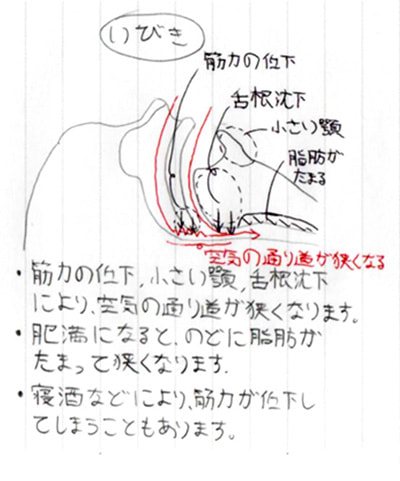 いびき
筋力の低下
舌根沈下
小さい顎
脂肪が
たまる
空気の通り道が狭くなる
・筋力の低下,小さい顎,舌根沈下
により、空気の通り道が狭くなります。
・肥満になると、のどに脂肪が
たまって狭くなります.
・寝酒などにより、筋力が低下し
てしまうこともあります。